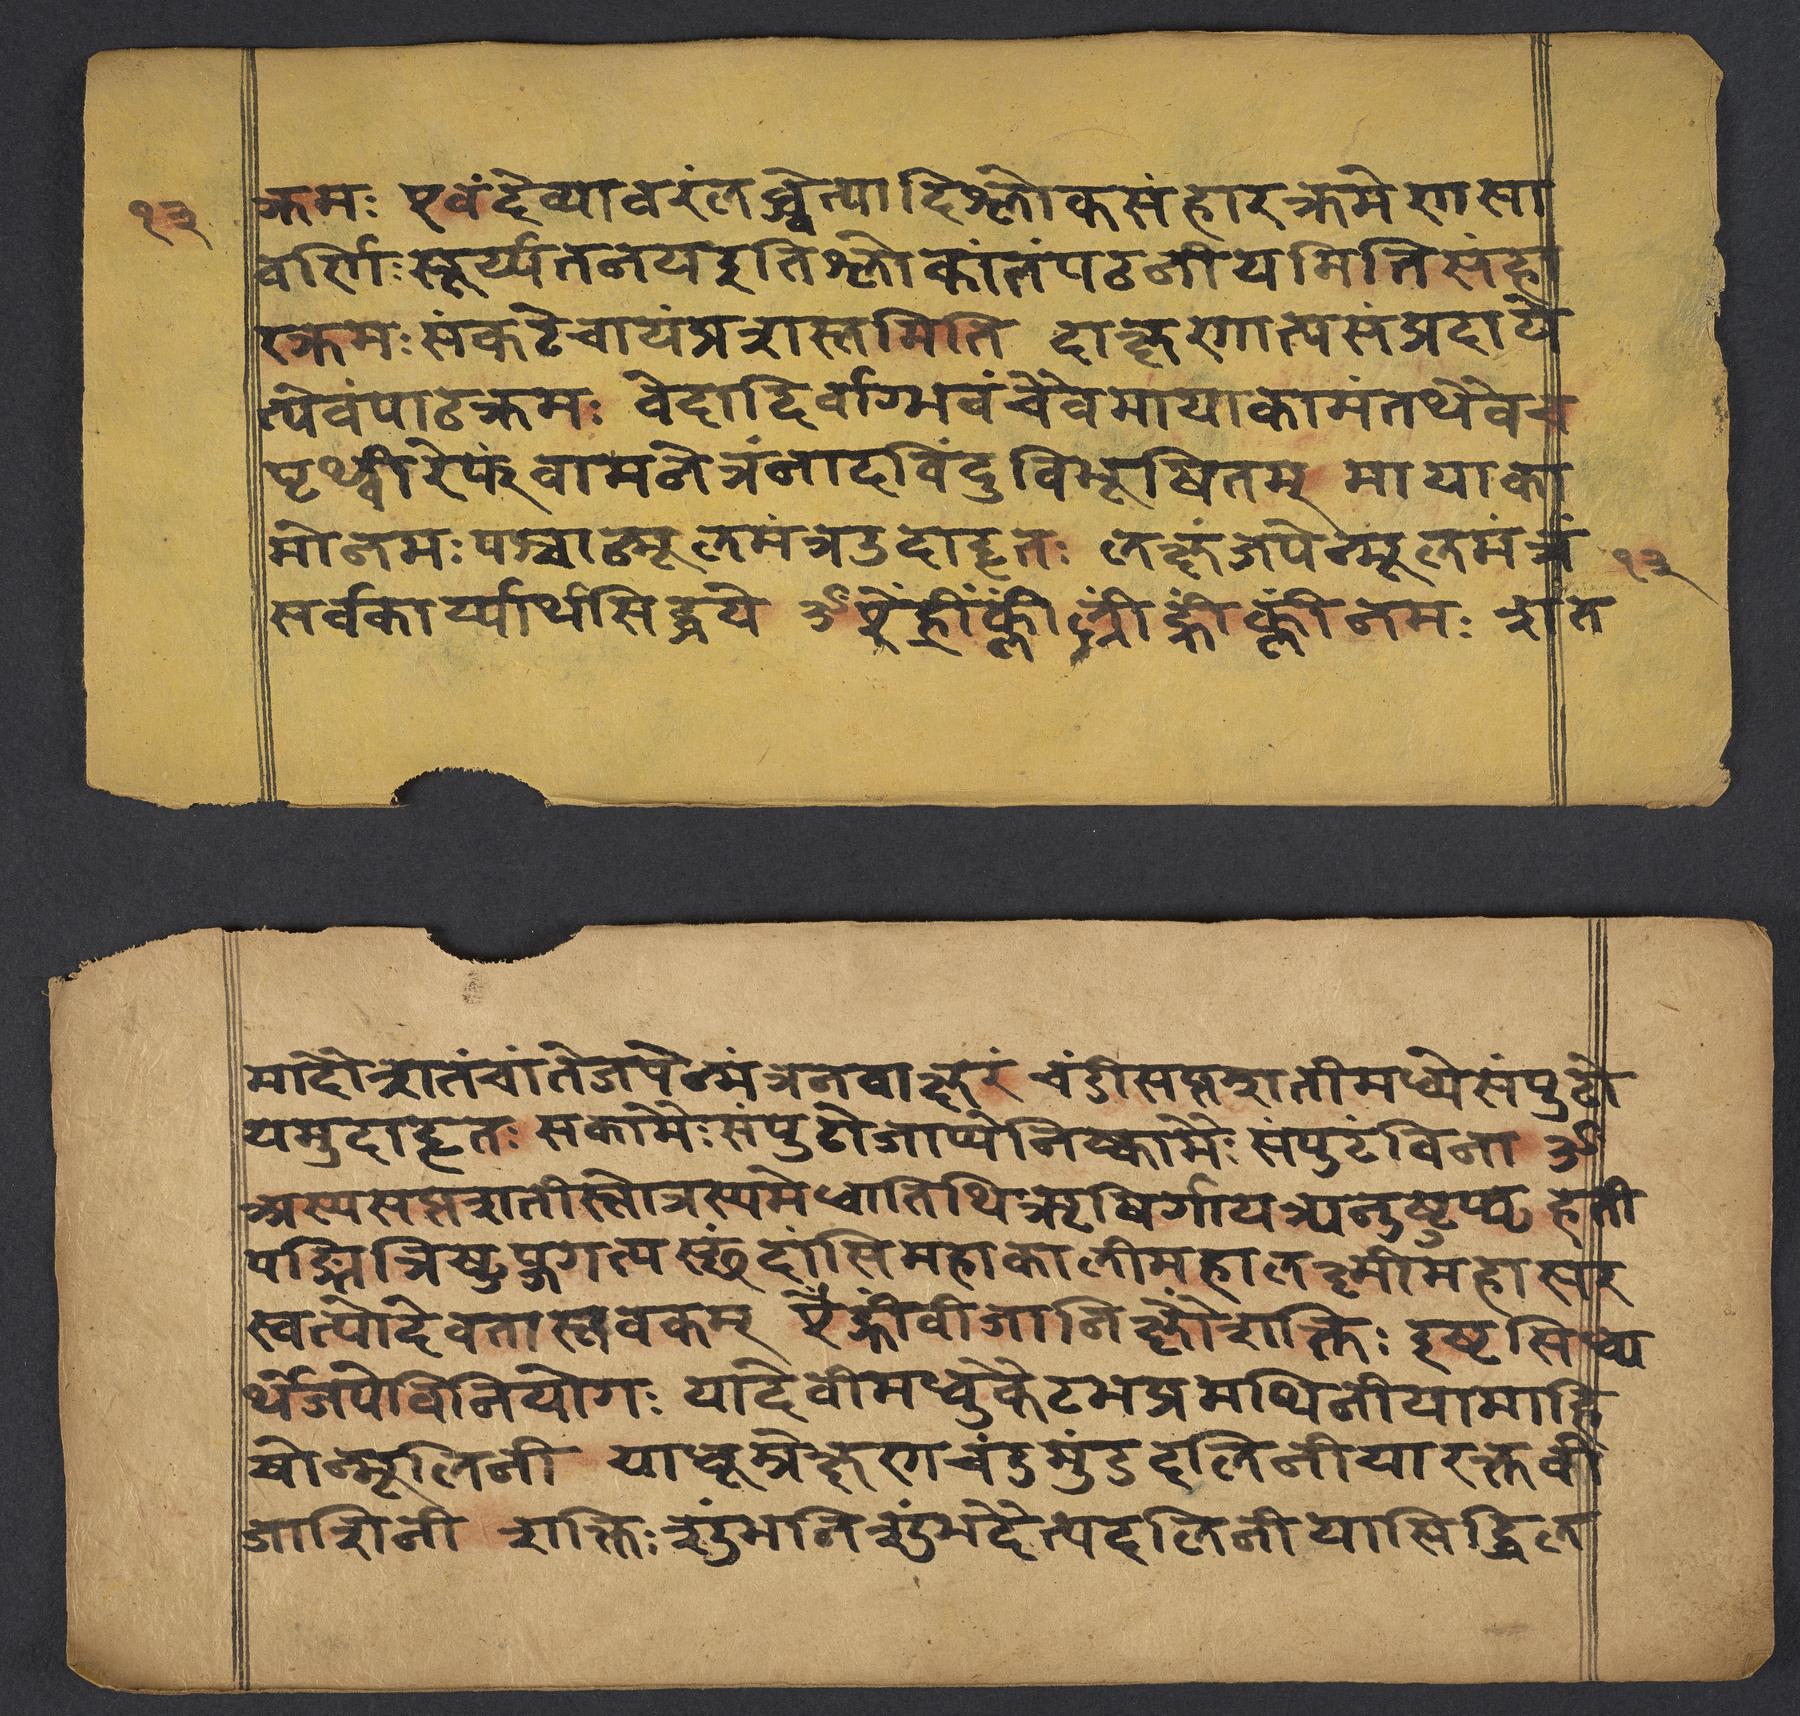 १३
क्रमः एवंदेव्यावरंलब्ध्वेत्यादिश्लोकसंहारक्रमेणसा
वर्णिःसूर्य्यतनयइतिश्लोकांतंपठनीयमितिसंहा
रक्रमःसंकटेचायंप्रशस्तमिति दाक्षणात्यसंप्रदाये
त्येवंपाठक्रमः वेदादिर्वाग्भवंचैवमायाकामंतथैवच
पृथ्वीरेफंवामनेत्रंनादविंदुविभूषितम् मायाका
मोनमःपश्चान्मूलमंत्रउदाहृतः लक्षंजपेन्मूलमंत्रं
१३
सर्वकार्य्यार्थसिद्धये ॐऐंह्रींक्लींश्रींह्रींक्लींनमः शत
मादौशतंचांतेजपेन्मंत्रनवाक्षरं चंडीसप्तशतीमध्येसंपुटो
यमुदाहृतः सकामैःसंपुटोजाप्येनिष्कामैः संपुटंविना ॐ
अस्यसप्तशतीस्तोत्रस्यमेधातिथिऋषिर्गायत्र्यनुष्टुप्बृहती
पङ्क्तित्रिष्टुप्जगत्यस्छंदांसिमहाकालीमहालक्ष्मीमहासर
स्वत्योदेवतास्तवकम् ऐंह्रींवीजानिक्ष्रौंशक्तिः इष्टसिध्य
र्थेजपेविनियोगः यादेवीमधुकैटभप्रमथिनीयामाहि
षोन्मूलिनी याधूम्रेक्षणचंडमुंडदलिनीयारक्तवी
जाशिनी शक्तिःशुंभनिशुंभदैत्यदलिनीयासिद्धिल